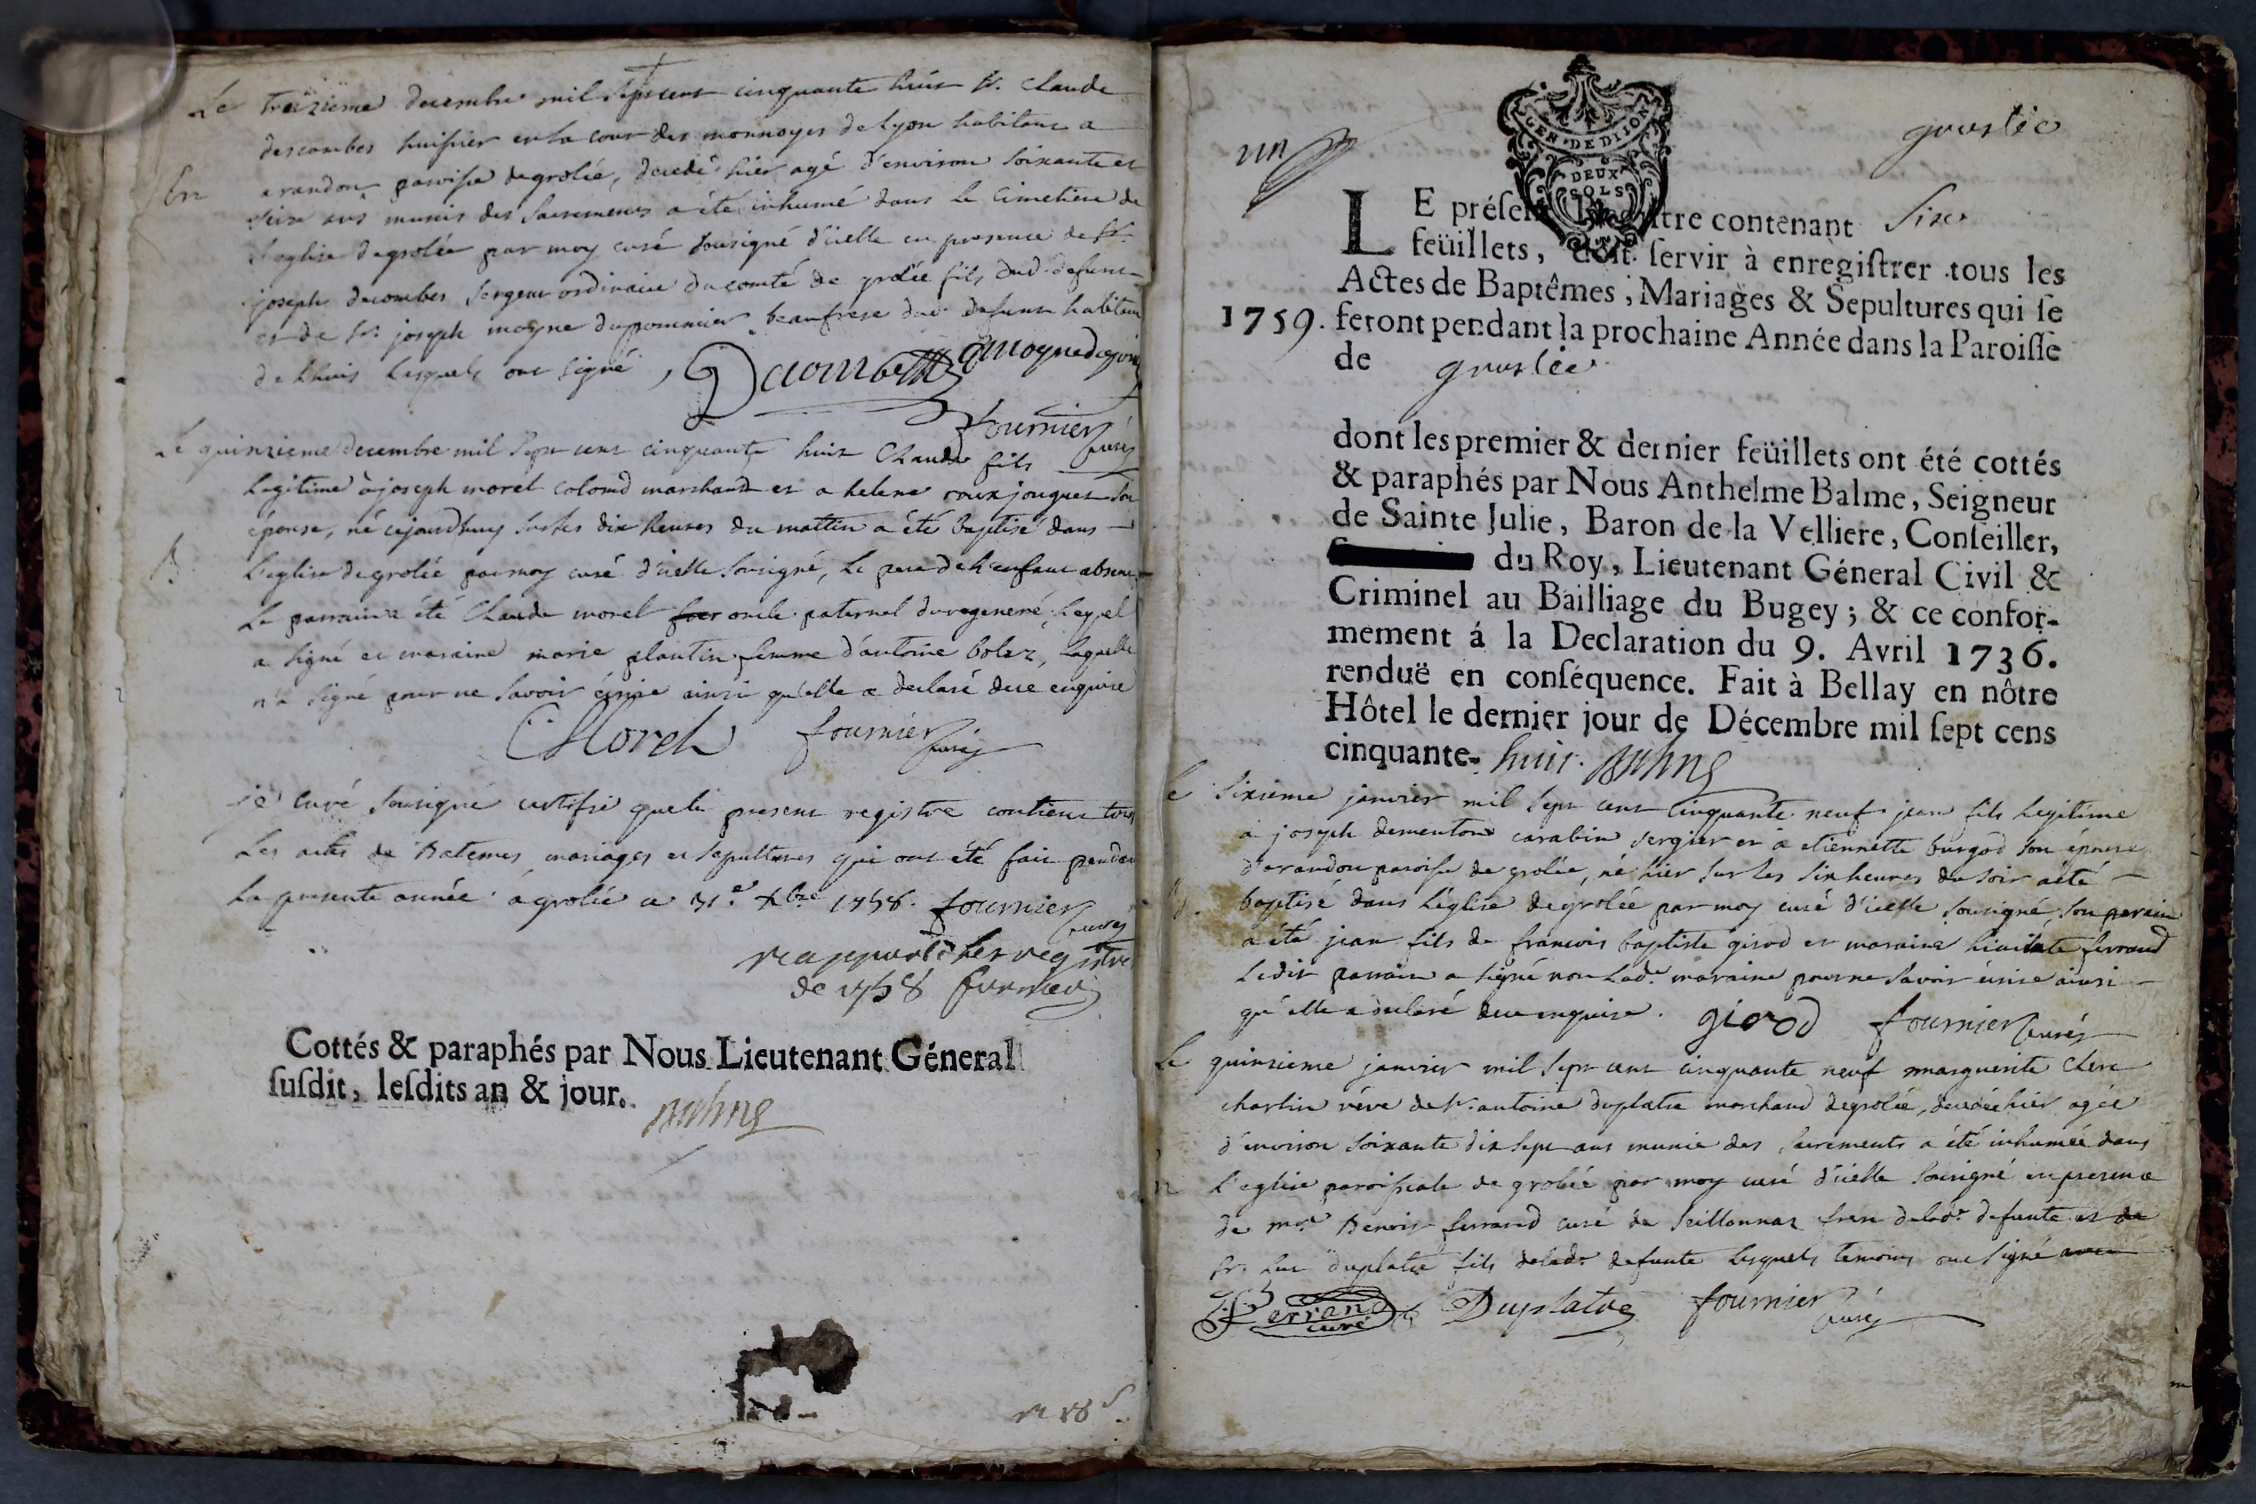 Le treizieme decembre mil sept cent cinquante huit Sr. Claude
descombes huissier en la cour des monnoyes de Lyon habitant a
En
arandon paroisse de grolée, decedé hier agé d'environ soixante et
seize ans munis des sacrements a été inhumé dans le cimetiere de
l'eglise de grolée par moy curé sousigné d'icelle en presence de Sr.
joseph decombes sergent ordinaire du comté de grolée fils dud. defunt
et de Sr. joseph moyne dupommier beaufrere dud. defunt habitant
de Lhuis lesquels ont signé
Fournier curé
Le quinzieme decembre mil sept cent cinquante huit Claude fils
legitime à joseph morel colomd marchand et a helene jouguet son
épouse, né cejourdhuy sur les dix heures du mattin a été baptisé dans
B
l'eglise de grolée par moy curé d'icelle sousigné, le pere de l'enfant absent
le parrain a été Claude morel oncle paternel du regeneré, lequel
a signé et maraine marie plantin femme d'antoine bolez, laquelle
n'a signé pour ne savoir écrire ainsi qu'elle a declaré deue enquise
CMorel fournier curé
je curé sousigné certifie que le present registre contient tous
les actes de Batemes mariages et sepultures qui ont été fait pendant
la presente année à grolée ce 31.e Xbre 1758. fournier curé
registre
de 1758
Cottés & paraphés par Nous Lieutenant Géneral
susdit, lesdits an & jour.
un
GEN. DE DIJON
DEUX
SOLS
groslée
LE présent Registre contenant Six
feüillets, doit servir à enregistrer tous les
Actes de Baptêmes, Mariages & Sepultures qui se
1759. feront pendant la prochaine Année dans la Paroisse
de groslée
dont les premier & dernier feüillets ont été cottés
& paraphés par Nous Anthelme Balme, Seigneur
de Sainte Julie, Baron de la Velliere, Conseiller,
du Roy, Lieutenant Géneral Civil &
Criminel au Bailliage du Bugey; & ce confor-
mement á la Declaration du 9. Avril 1736.
renduë en conséquence. Fait à Bellay en nôtre
Hôtel le dernier jour de Décembre mil sept cens
cinquante- huit.
Le sixieme janvier mil sept cent cinquante neuf jean fils legitime
a joseph dementon carabin sergier et à etiennette burgod son épouse
d'arandon paroisse de grolée, né hier sur les six heures du soir a été
B.
baptisé dans l'église de grolée par moy curé d'icelle sousigné, son parain
a été jean fils de francois baptiste girod et maraine ferrand
ledit parrain a signé non lade. maraine pour ne savoir écrire ainsi
qu'elle a declaré deue enquise. girod fournier curé
Le quinzieme janvier mil sept cent cinquante neuf marguerite Clere
charlin véve de Sr. antoine duplatre marchand de grolée, decedée hier agée
d'environ soixante dix sept ans munie des sacrements a été inhumée dans
l'eglise paroissiale de grolée par moy curé d'icelle sousigné en presence
de mre. Benoit ferrand curé de Seillonnaz frere de lade. defunte et de
Sr. Luc duplatre fils de lade. defunte lesquels temoins ont signé avec
Ferrand curé Duplatre fournier curé